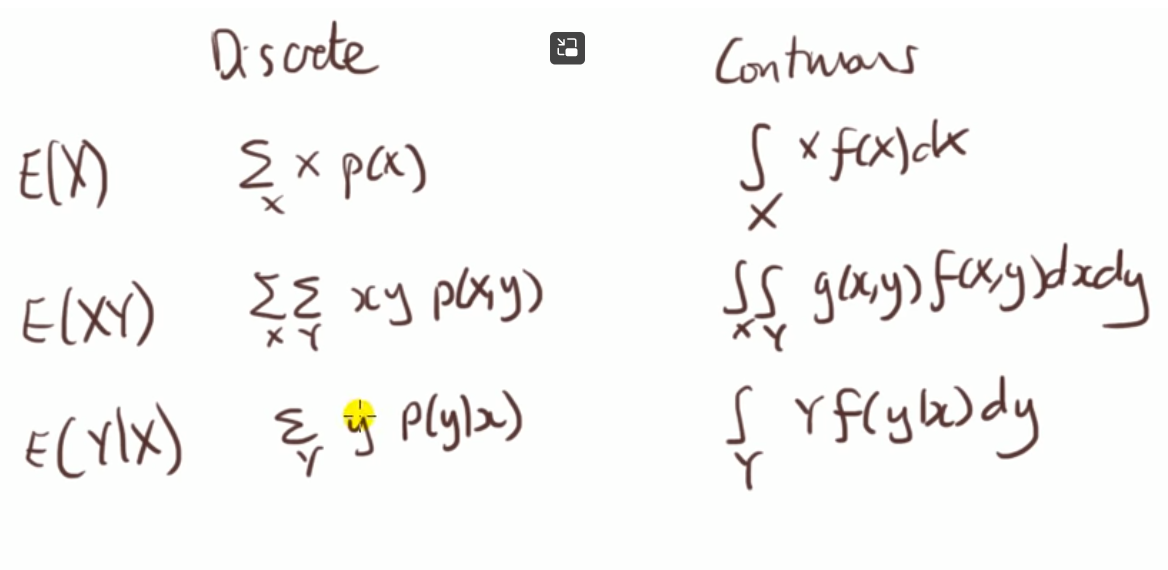 Discrete Continuous
E(X) Σ_X x p(x) ∫_X x f(x)dx
E(XY) Σ_X Σ_Y xy p(x,y) ∫_X ∫_Y g(x,y) f(x,y)dxdy
E(Y|X) Σ_Y y p(y|x) ∫_Y Y f(y|x)dy